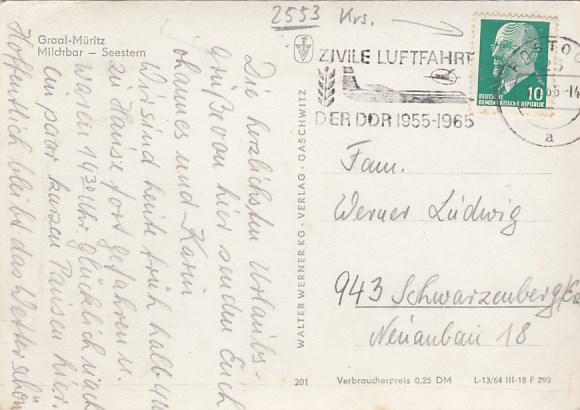 2553 Krs.
Graal-Müritz
Milchbar – Seestern
Die herzlichsten Urlaubs-
grüße von hier senden Euch
Johannes und Karin
Wir sind heute früh halb 4 Uhr
zu Hause fort gefahren u.
waren 14 30 Uhr glücklich nach
ein paar kurzen Pausen hier.
Hoffentlich bleibt das Wetter schön
WALTER WERNER KO - VERLAG - GASCHWITZ
ZIVILE LUFTFAHRT
DER DDR 1955-1965
DEUTSCHE
DEMOKRATISCHE REPUBLIK
10
ROSTOC
25
65-14
a
Fam.
Werner Ludwig
943 Schwarzenberg/
Neuanbau 18
201
Verbraucherpreis 0,25 DM
L-13/64 III-18 F 290